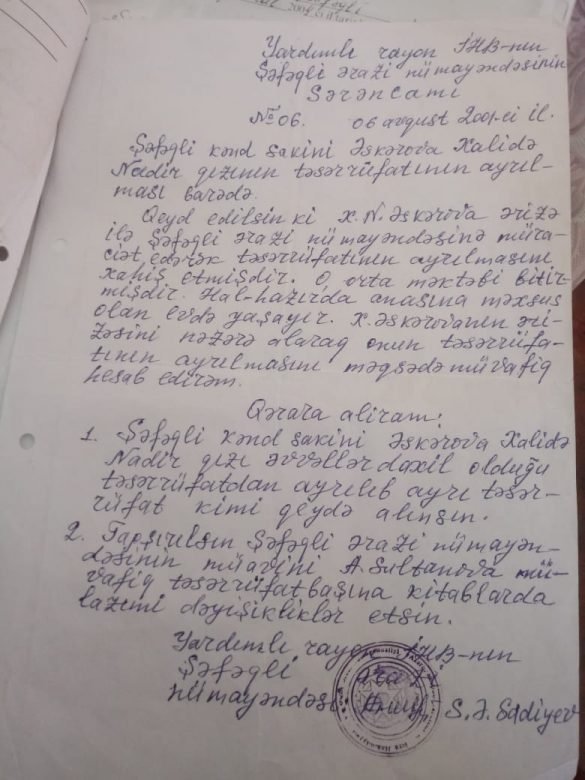 Yardımlı rayon İHB-nın
Şəfəqli ərazi nümayəndəsinin
Sərəncamı
№ 06. 06 avqust 2001-ci il.
Şəfəqli kənd sakini Əskərova Xalidə
Nadir qızının təsərrüfatının ayrıl-
ması barədə.
Qeyd edilsin ki X.N.Əskərova ərizə
ilə Şəfəqli ərazi nümayəndəsinə müra-
ciət edərək təsərrüfatının ayrılmasını
xahiş etmişdir. O, orta məktəbi bitir-
mişdir. Hal-hazırda anasına məxsus
olan evdə yaşayır. X.Əskərovanın əri-
zəsini nəzərə alaraq onun təsərrüfa-
tının ayrılmasını məqsədə müvafiq
hesab edirəm.
Qərara alıram:
1. Şəfəqli kənd sakini Əskərova Xalidə
Nadir qızı əvvəllər daxil olduğu
təsərrüfatdan ayrılıb ayrı təsər-
rüfat kimi qeydə alınsın.
2. Tapşırılsın Şəfəqli ərazi nümayən-
dəsinin müavini A.Sultanova mü-
vafiq təsərrüfatbaşına kitablarda
lazımi dəyişikliklər etsin.
Yardımlı rayon İHB-nın
Şəfəqli ərazi
nümayəndəsi S.Ə.Sadıyev